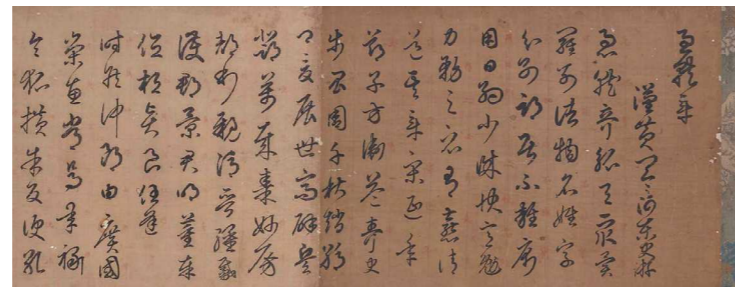 急就章
漢黄門令河東史游
急就奇觚與衆異
羅列諸物名姓字
分別部居不雜廁
用日約少誠快意勉
力務之必有憙請
道其章宋延年
鄭子方衛益壽史
步昌周千秋趙孺
卿爰展世高辟兵
鄧萬歲秦妙房
郝利親馮漢彊戴
護郡景君明董奉
德桓賢良任逢
時侯仲郎由廣國
榮惠常烏承祿
令狐橫朱交便孔